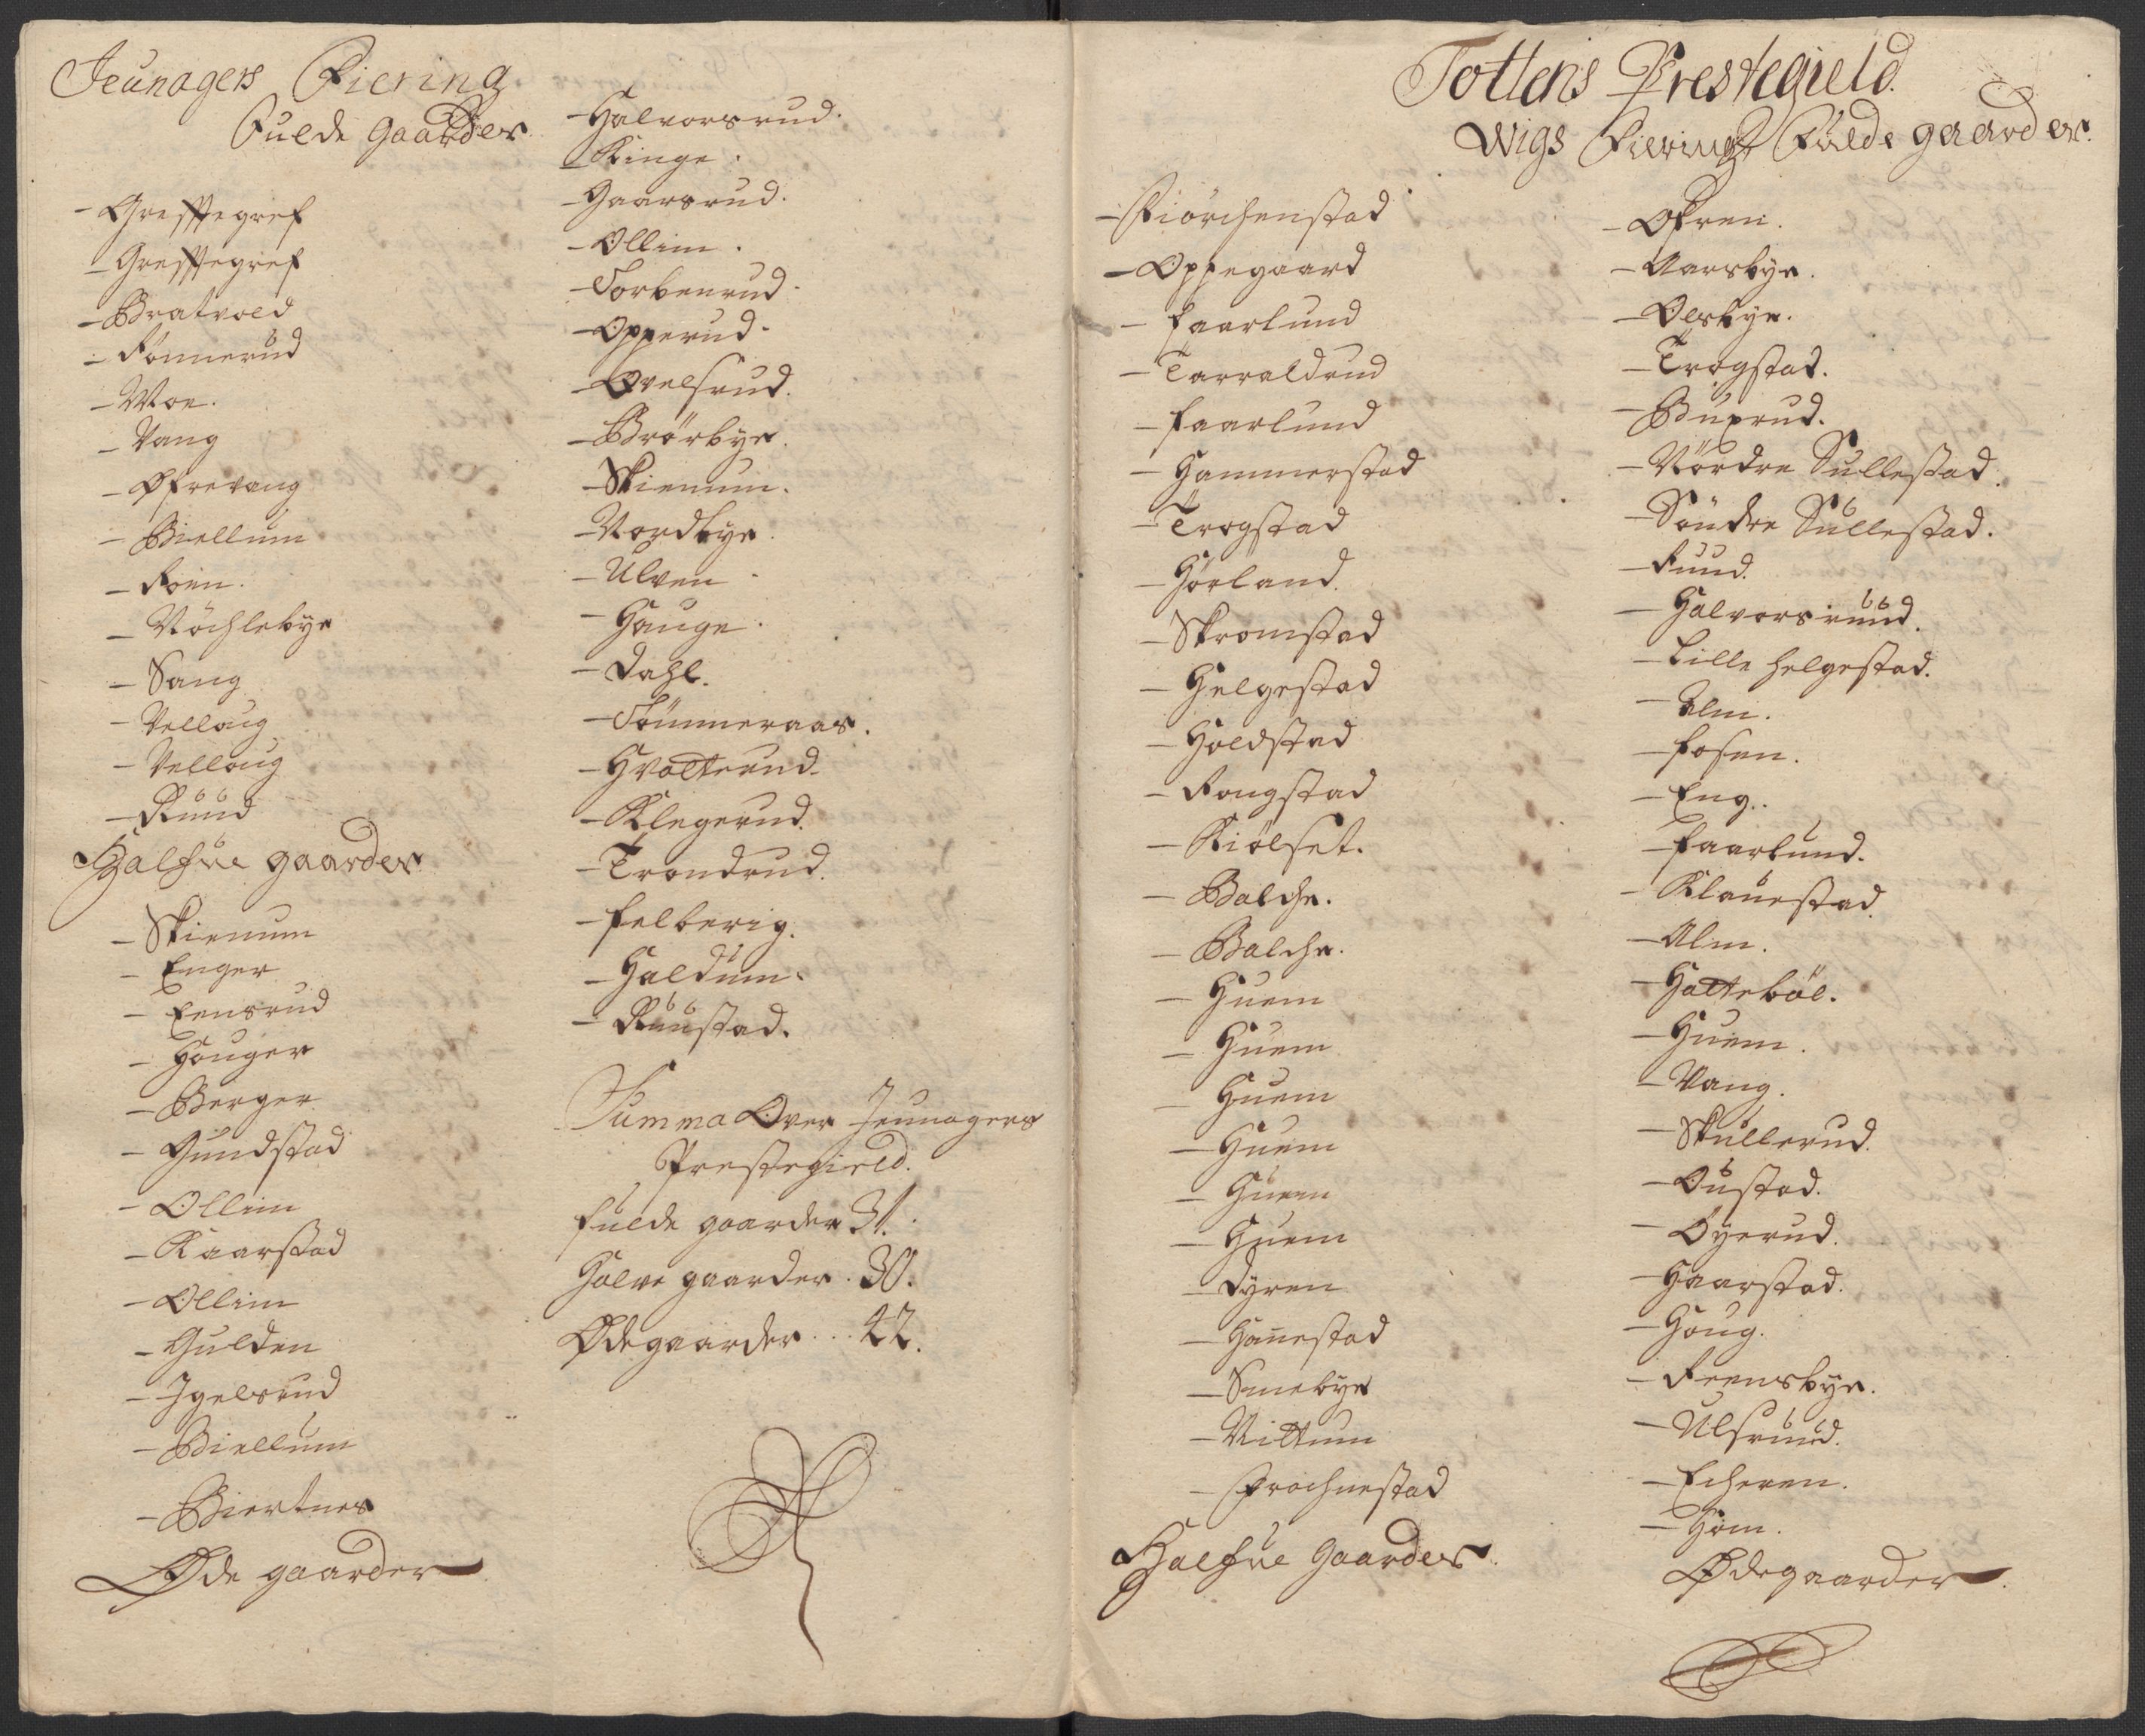 Jeunagers Fiering
Fulde Gaarder
- Greffsegref
- Greffsegref
- Bratvold
- Rønnerud
- Moe.
- Vang
- Øfrevang
- Biellum
- Roen.
- Nöchlebye
- Sang
- Velloug
- Velloug
- Ruud
Halfue gaarder
- Skienum
- Enger
- Eensrud
- Houger
- Berger
- Gundstad
- Ollim
- Kaarstad
- Ollim
- Gulden
- Jgelsrud
- Biellum
- Biertnes
Øde gaarder
- Halvorsrud.
- Kinge.
- Gaarsrud.
- Ollim.
- Torbenrud.
- Opperud.
- Ovelsrud.
- Brörbye.
- Skienum.
- Nordbye.
- Ulven.
- Hauge.
- Dahl.
- Tömmeraas.
- Hvatterud.
- Klegerud.
- Trondrud.
- Felberig.
- Haldum.
- Ruustad.
Summa Over Jeunagers
Prestegield.
Fulde gaarder 31.
Halve gaarder. 30.
Ødegaarder... 42.
Tottens Prestegield.
Wigs Fiering Fulde gaarder.
- Kiörchenstad
- Oppegaard
- Faarlund
- Tarraldrud
- Faarlund
- Hammerstad
- Trogstad
- Hörland.
- Skromstad
- Helgestad
- Holdstad
- Rongstad
- Kiölset.
- Balche.
- Balche.
- Huem
- Huem
- Huem
- Huem
- Huem
- Huem
- Dyren
- Hannestad
- Smebye
- Vittum
- Prochnestad
Halfue Gaarder.
- Øfren.
- Aarsbye.
- Olsbye.
- Trogstad.
- Buxrud.
- Nördre Sullestad.
- Söndre Sullestad.
- Ruud.
- Halvorsruud.
- Lille helgestad.
- Alm.
- Fosen.
- Eng.
- Faarlund.
- Klauestad.
- Alm.
- Hattebøl.
- Huem.
- Vang.
- Skullerud.
- Oustad.
- Öyerud.
- Haarstad.
- Houg.
- Reensbye.
- Ulsruud.
- Echeren.
- Hom.
Ødegaarder.